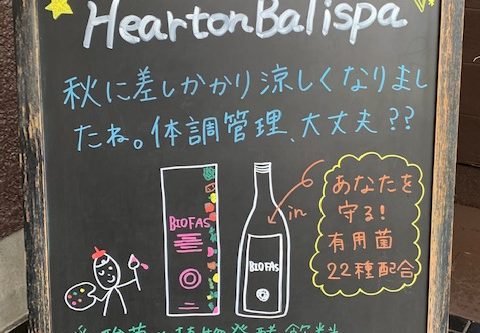 HeartonBalispa
秋に差しかかり涼しくなりまし
たね。体調管理、大丈夫??
BIOFAS
BIOFAS
in
あなたを
守る!
有用菌
22種配合
酸菌 植物発酵飲料